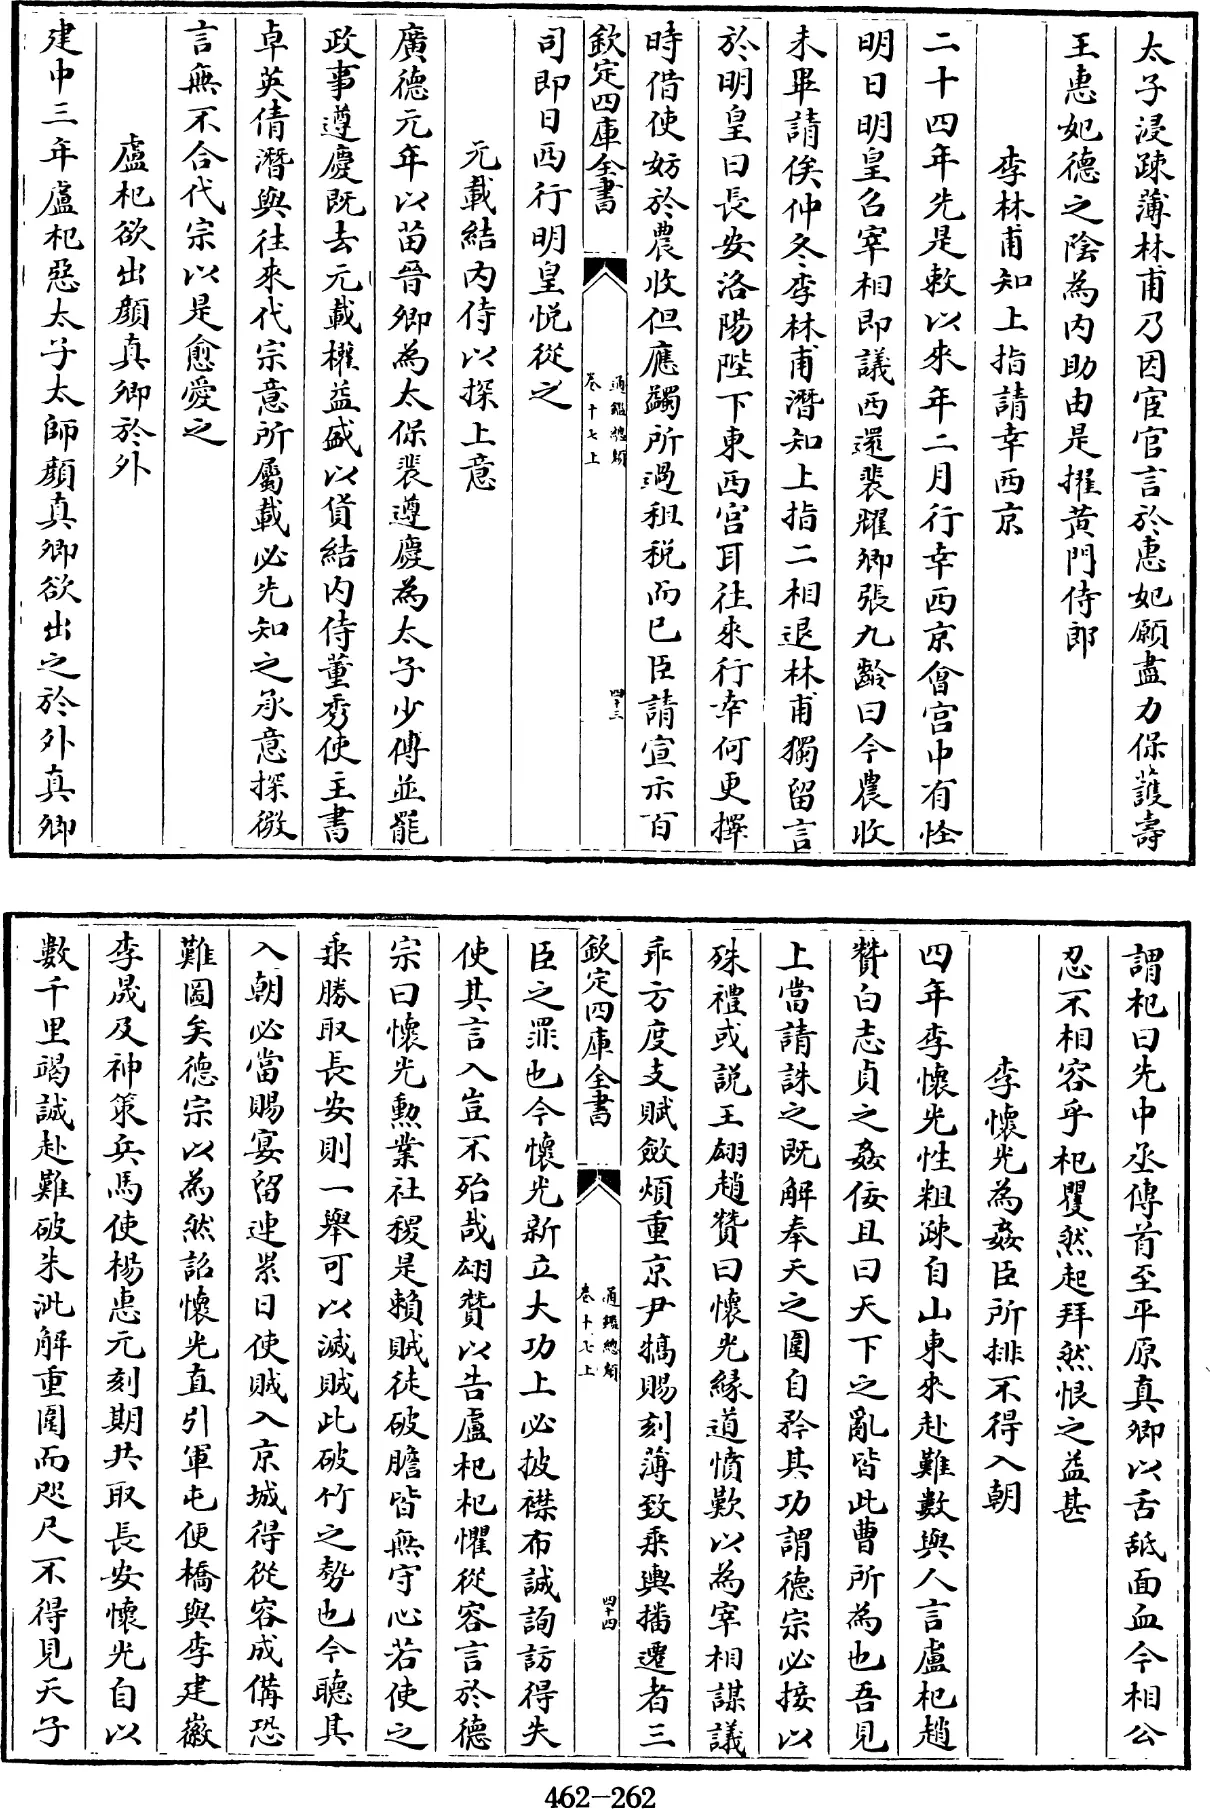 太子浸疎薄林甫乃因宦官言於惠妃願盡力保護壽
王惠妃德之陰為内助由是擢黄門侍郎
李林甫知上指請幸西京
二十四年先是敕以來年二月行幸西京會宫中有怪
明日明皇召宰相即議西還裴耀卿張九齡曰今農收
未畢請俟仲冬李林甫潛知上指二相退林甫獨留言
於明皇曰長安洛陽陛下東西宫耳往來行幸何更擇
時借使妨於農收但應蠲所過租税而已臣請宣示百
欽定四庫全書
通鑑總類
卷十七上
四十三
司即日西行明皇悦從之
元載結内侍以探上意
廣德元年以苗晉卿為太保裴遵慶為太子少傅並罷
政事遵慶既去元載權益盛以貨結内侍董秀使主書
卓英倩潛與往來代宗意所屬載必先知之承意探微
言無不合代宗以是愈愛之
盧杞欲出顔真卿於外
建中三年盧杞惡太子太師顔真卿欲出之於外真卿
謂杞曰先中丞傳首至平原真卿以舌舐面血今相公
忍不相容乎杞矍然起拜然恨之益甚
李懷光為姦臣所排不得入朝
四年李懷光性粗疎自山東來赴難數與人言盧杞趙
贊白志貞之姦佞且曰天下之亂皆此曹所為也吾見
上當請誅之既解奉天之圍自矜其功謂德宗必接以
殊禮或説王翃趙贊曰懷光緣道憤歎以為宰相謀議
乖方度支賦斂煩重京尹犒賜刻薄致乘輿播遷者三
欽定四庫全書
通鑑總類
卷十七上
四十四
臣之罪也今懷光新立大功上必披襟布誠詢訪得失
使其言入豈不殆哉翃贊以告盧杞杞懼從容言於德
宗曰懷光勲業社稷是賴賊徒破膽皆無守心若使之
乘勝取長安則一舉可以滅賊此破竹之勢也今聽其
入朝必當賜宴留連累日使賊入京城得從容成備恐
難圖矣德宗以為然詔懷光直引軍屯便橋與李建徽
李晟及神策兵馬使楊惠元刻期共取長安懷光自以
數千里竭誠赴難破朱泚解重圍而咫尺不得見天子
462-262